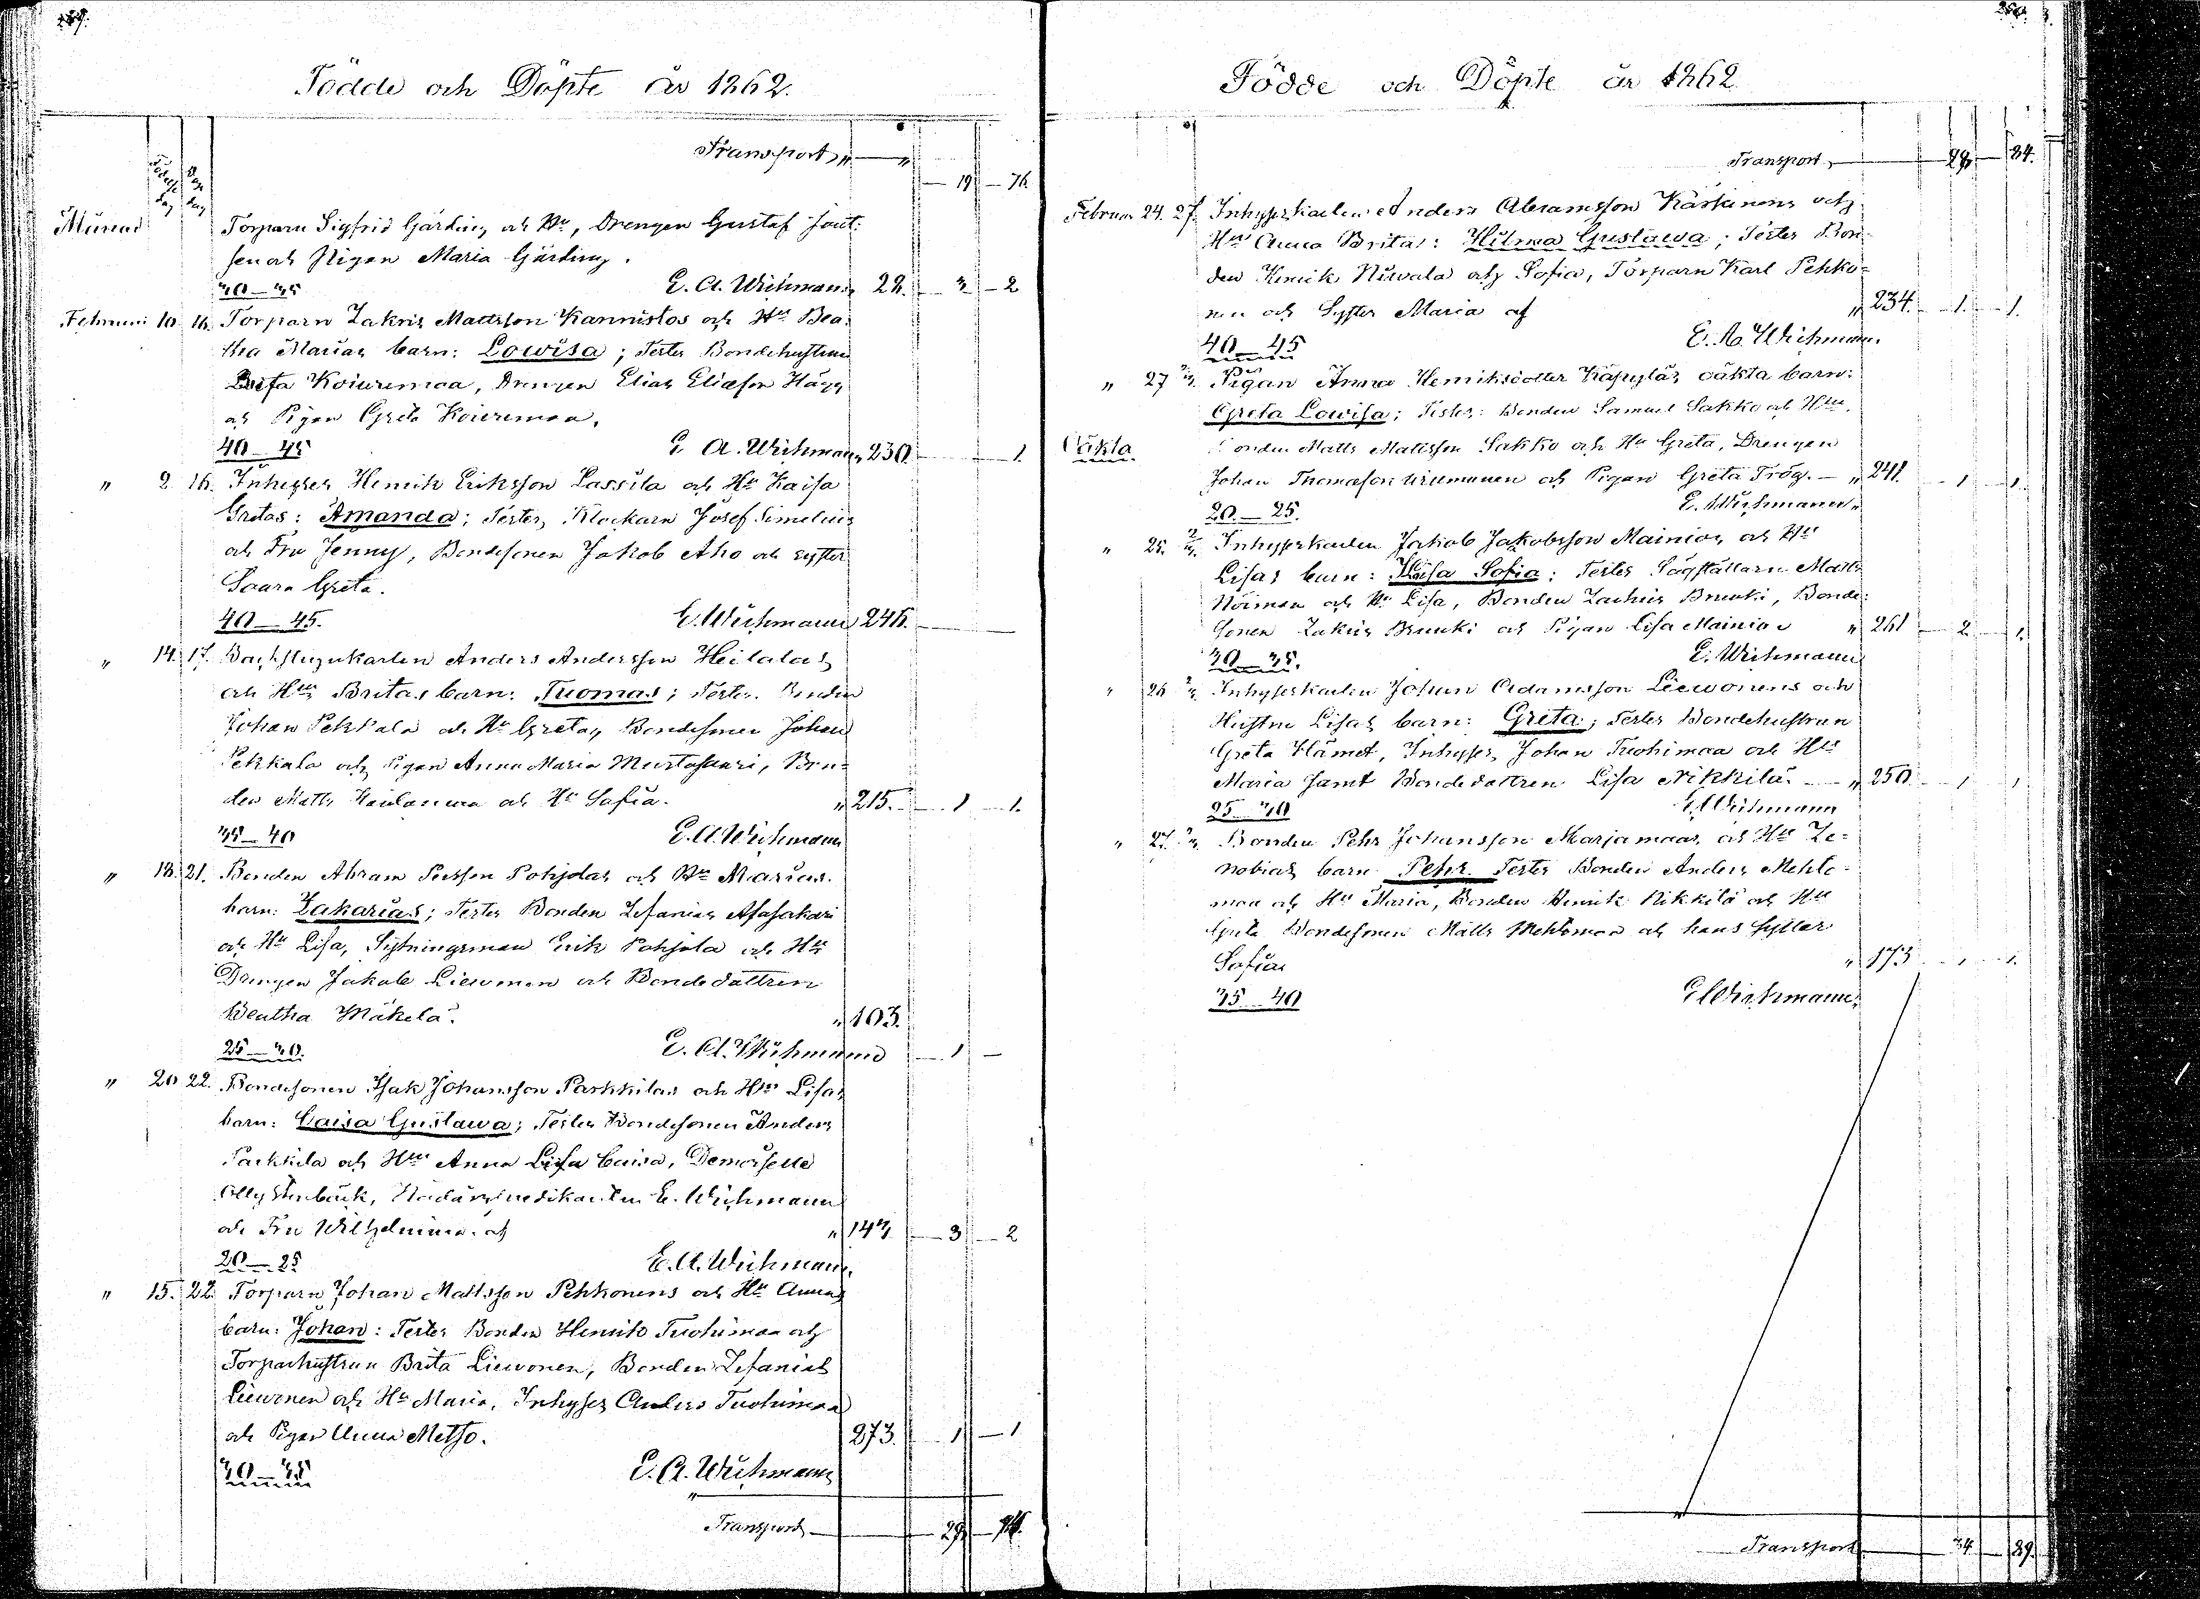 Födde och Döpte år 1862.
Transport " — "
— 19 — 76
Månad Födelse dag Dop dag
Torparn Sigfrid Gärding och Hu, Drengen Gustaf
sen och Pigan Maria Gärding.
30—35 E. A. Wichmann 28. — 3 — 2
Februari 10 16. Torparn Zakris Mattsson Kannistos och Hu Bea-
tha Marias barn: Lowisa; Testes Bondehustrun
Lisa Koiuremaa, Drengen Elias Eliasson Hägg
och Pigan Greta Koiuremaa.
40—45 E. A. Wichmann 230. 1.
" 9 16. Inhyses Henrik Eriksson Lassila och Hu Kaisa
Gretas: Amanda; Testes Klockarn Josef Simelius
och Fru Jenny, Bondesonen Jakob Aho och syster
Saara Greta.
40—45. E. Wichmann 246.
" 14. 17. Backstugukarlen Anders Andersson Heilalas
och Hus Britas barn: Tuomas; Testes Bonden
Johan Pekkala och Hu Greta, Bondesonen Johan
Pekkala och Pigan Anna Maria Mustasaari, Bon-
den Matts och Hu Sofia. " 215. 1 1.
35—40 E. A. Wichmann
" 18. 21. Bonden Abram Persson Pohjolas och Hu Marias
barn: Zakarias; Testes Bonden Zefanias Asasakari
och Hu Lisa, Sytningsman Erik Pohjola och Hu
Drengen Jakob Liewonen och Bondedottren
Beatha Mäkelä. " 103.
25—30. E. A. Wichmann 1 —
" 20 22. Bondesonen Isak Johansson Parkkilas och Hus Lisas
barn: Caisa Gustawa; Testes Bondesonen Anders
Parkkila och Hu Anna Lisa Caisa, Demoiselle
Olly Stenbäck, Nådårspredikanten E. Wichmann
och Fru Wilhelmina. af " 147 3 2
20—25 E. A. Wichmann.
" 15. 22. Torparn Johan Mattsson Pehkonens och Hu Annas
barn: Johan: Testes Bonden Henrik Tuohimaa och
Torparhustrun Brita Liewonen, Bonden Zefanias
Liewonen och Hu Maria, Inhyses Anders Tuohimaa
och Pigan Anna Metso. 273. 1 — 1
30—35 E. A. Wichmann
Transport — 29 — 84.
Födde och Döpte år 1862
Transport, — 29 — 84.
Februari 24. 27. Inhyseskarlen Anders Abramsson Kärkinens och
Hus Anna Britas: Hilma Gustawa; Testes Bon-
den Henrik Niwala och Sofia, Torparn Karl Pehko-
nen och Syster Maria af " 234. 1. 1.
40—45 E. A. Wichmann.
" 27 Pigan Anna Henriksdotter Käpyläs oäkta barn:
Greta Lowisa; Testes: Bonden Samuel Sakko och Hu,
Oäkta Bonden Matts Mattsson Sakko och Hu Greta, Drengen
Johan Thomasson och Pigan Greta Trög. — " 241. 1 1.
20.—25. E. Wichmann.
" 25. Inhyseskarlen Jakob Jakobsson Mainios och Hu
Lisas barn: Lisa Sofia; Testes Sågställarn Matts
och Hu Lisa, Bonden Zachris Brunki, Bonde-
sonen Zakris Brunki och Pigan Lisa Mainio " 261 2. 1.
30—35. E. Wichmann
" 26 Inhyseskarlen Johan Adamsson Liewonens och
Hustru Lisas barn: Greta; Testes Bondehustrun
Greta Hämet, Inhyses Johan Tuohimaa och Hu
Maria samt Bondedottren Lisa Nikkilä. — " 250. 1 1
25—30 E. Wichmann
" 27. Bonden Pehr Johansson Marjamaas och Hu Ze-
nobias barn Pehr. Testes Bonden Anders Mehto-
maa och Hu Maria, Bonden Henrik Nikkilä och Hu
Greta Bondesonen Matts Mehtomaa och hans syster
Sofia " 173 1 1.
35—40 E Wichmann.
Transport — 34 — 89.